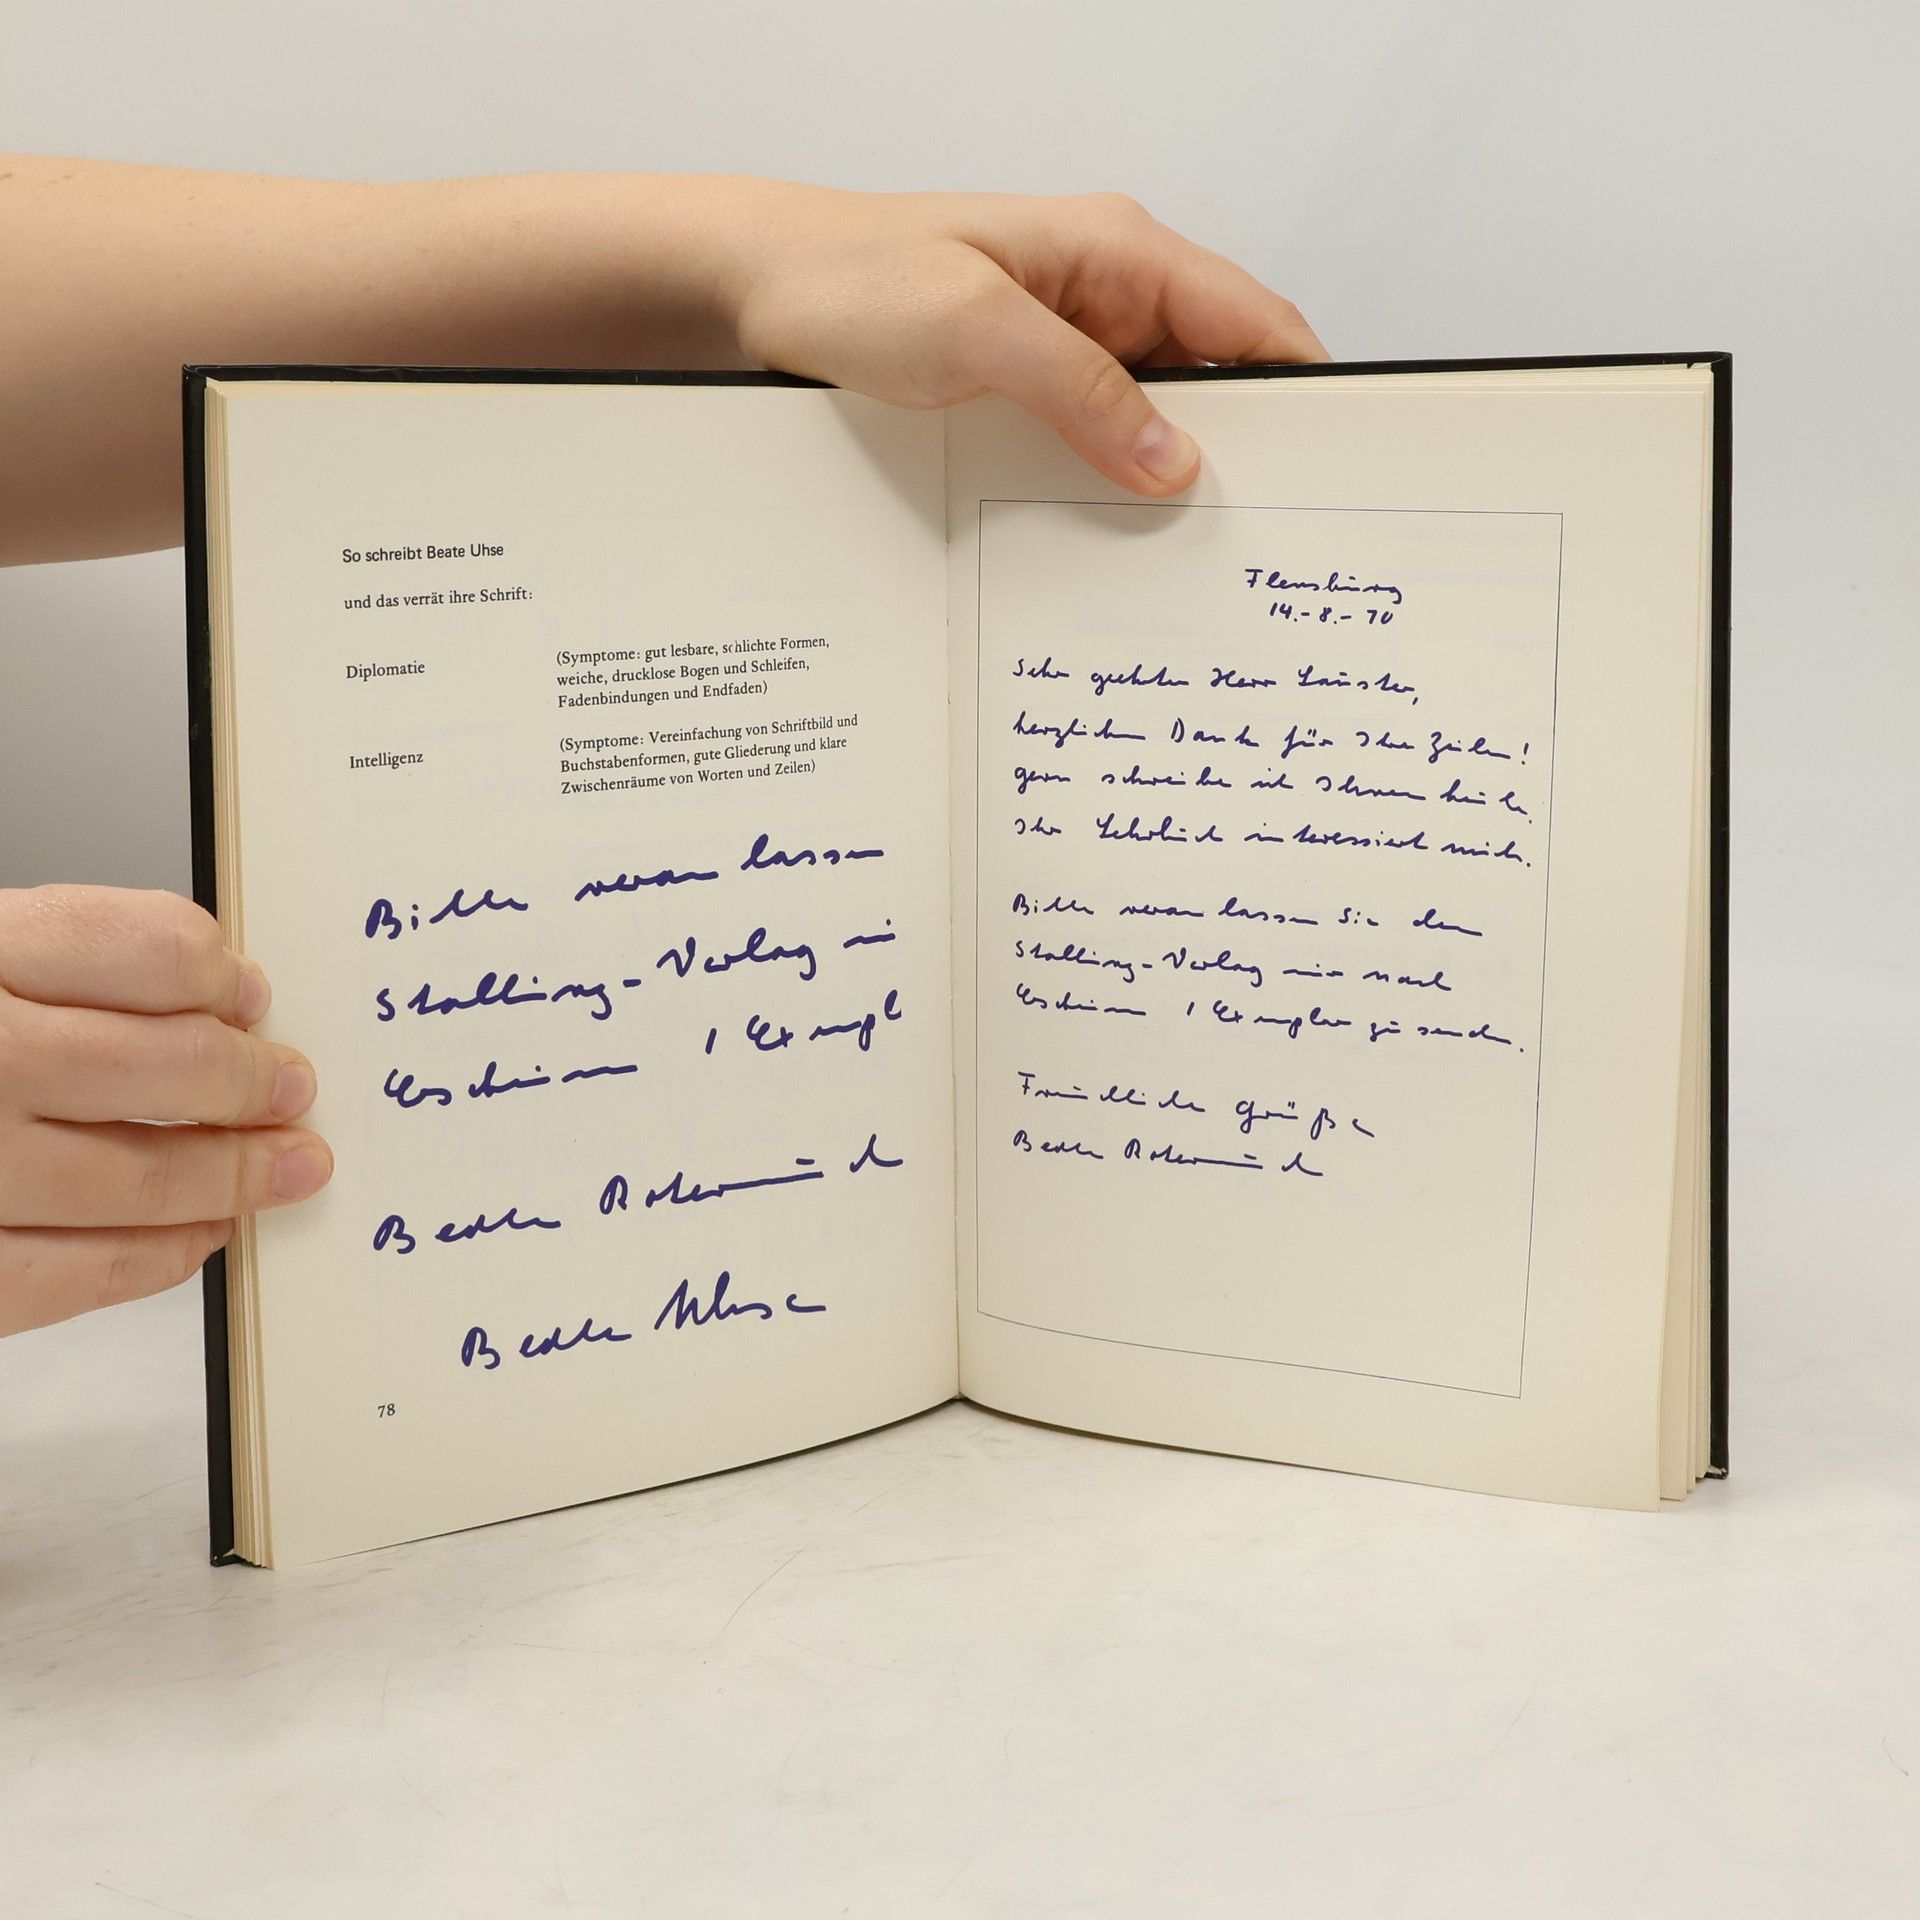 So schreibt Beate Uhse
und das verrät ihre Schrift:
Diplomatie
(Symptome: gut lesbare, schlichte Formen,
weiche, drucklose Bogen und Schleifen,
Fadenbindungen und Endfaden)
Intelligenz
(Symptome: Vereinfachung von Schriftbild und
Buchstabenformen, gute Gliederung und klare
Zwischenräume von Worten und Zeilen)
Bitte veranlassen
Stalling-Verlag
Erscheinen 1 Exempl
Beate Rotermund
Beate Uhse
78
Flensburg
14.-8.-70
Sehr geehrter Herr Lauster,
herzlichen Dank für Ihre Zeilen!
gern schreibe ich Ihnen heute.
Ihr Lehrbuch interessiert mich.
Bitte veranlassen Sie den
Stalling-Verlag mir nach
Erscheinen 1 Exemplar zu senden.
Freundliche Grüße
Beate Rotermund